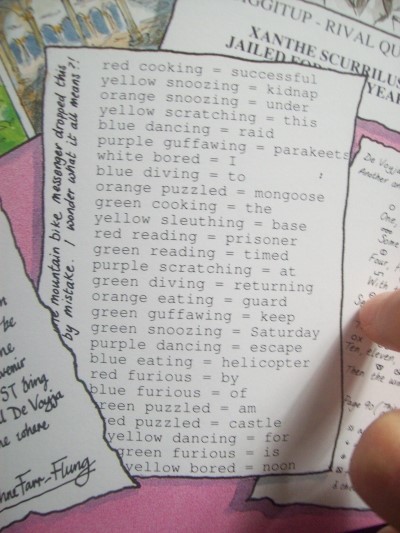 GGITUP - RIVAL QU
XANTHE SCURRILUS
JAILED FO
YEAR
mountain bike messenger dropped this
by mistake. I wonder what it all means?!
red cooking = successful
yellow snoozing = kidnap
orange snoozing = under
yellow scratching = this
blue dancing = raid
purple guffawing = parakeets
white bored = I
blue diving = to
orange puzzled = mongoose
green cooking = the
yellow sleuthing = base
red reading = prisoner
green reading = timed
purple scratching = at
green diving = returning
orange eating = guard
green guffawing = keep
green snoozing = Saturday
purple dancing = escape
blue eating = helicopter
red furious = by
blue furious = of
green puzzled = am
red puzzled = castle
yellow dancing = for
green furious = is
yellow bored = noon
be
ST bring
l De Voyja
where
nne Farr-Flung
De Voyja
Another on
One,
Some
Four
With
Ten, eleven,
Then the wa